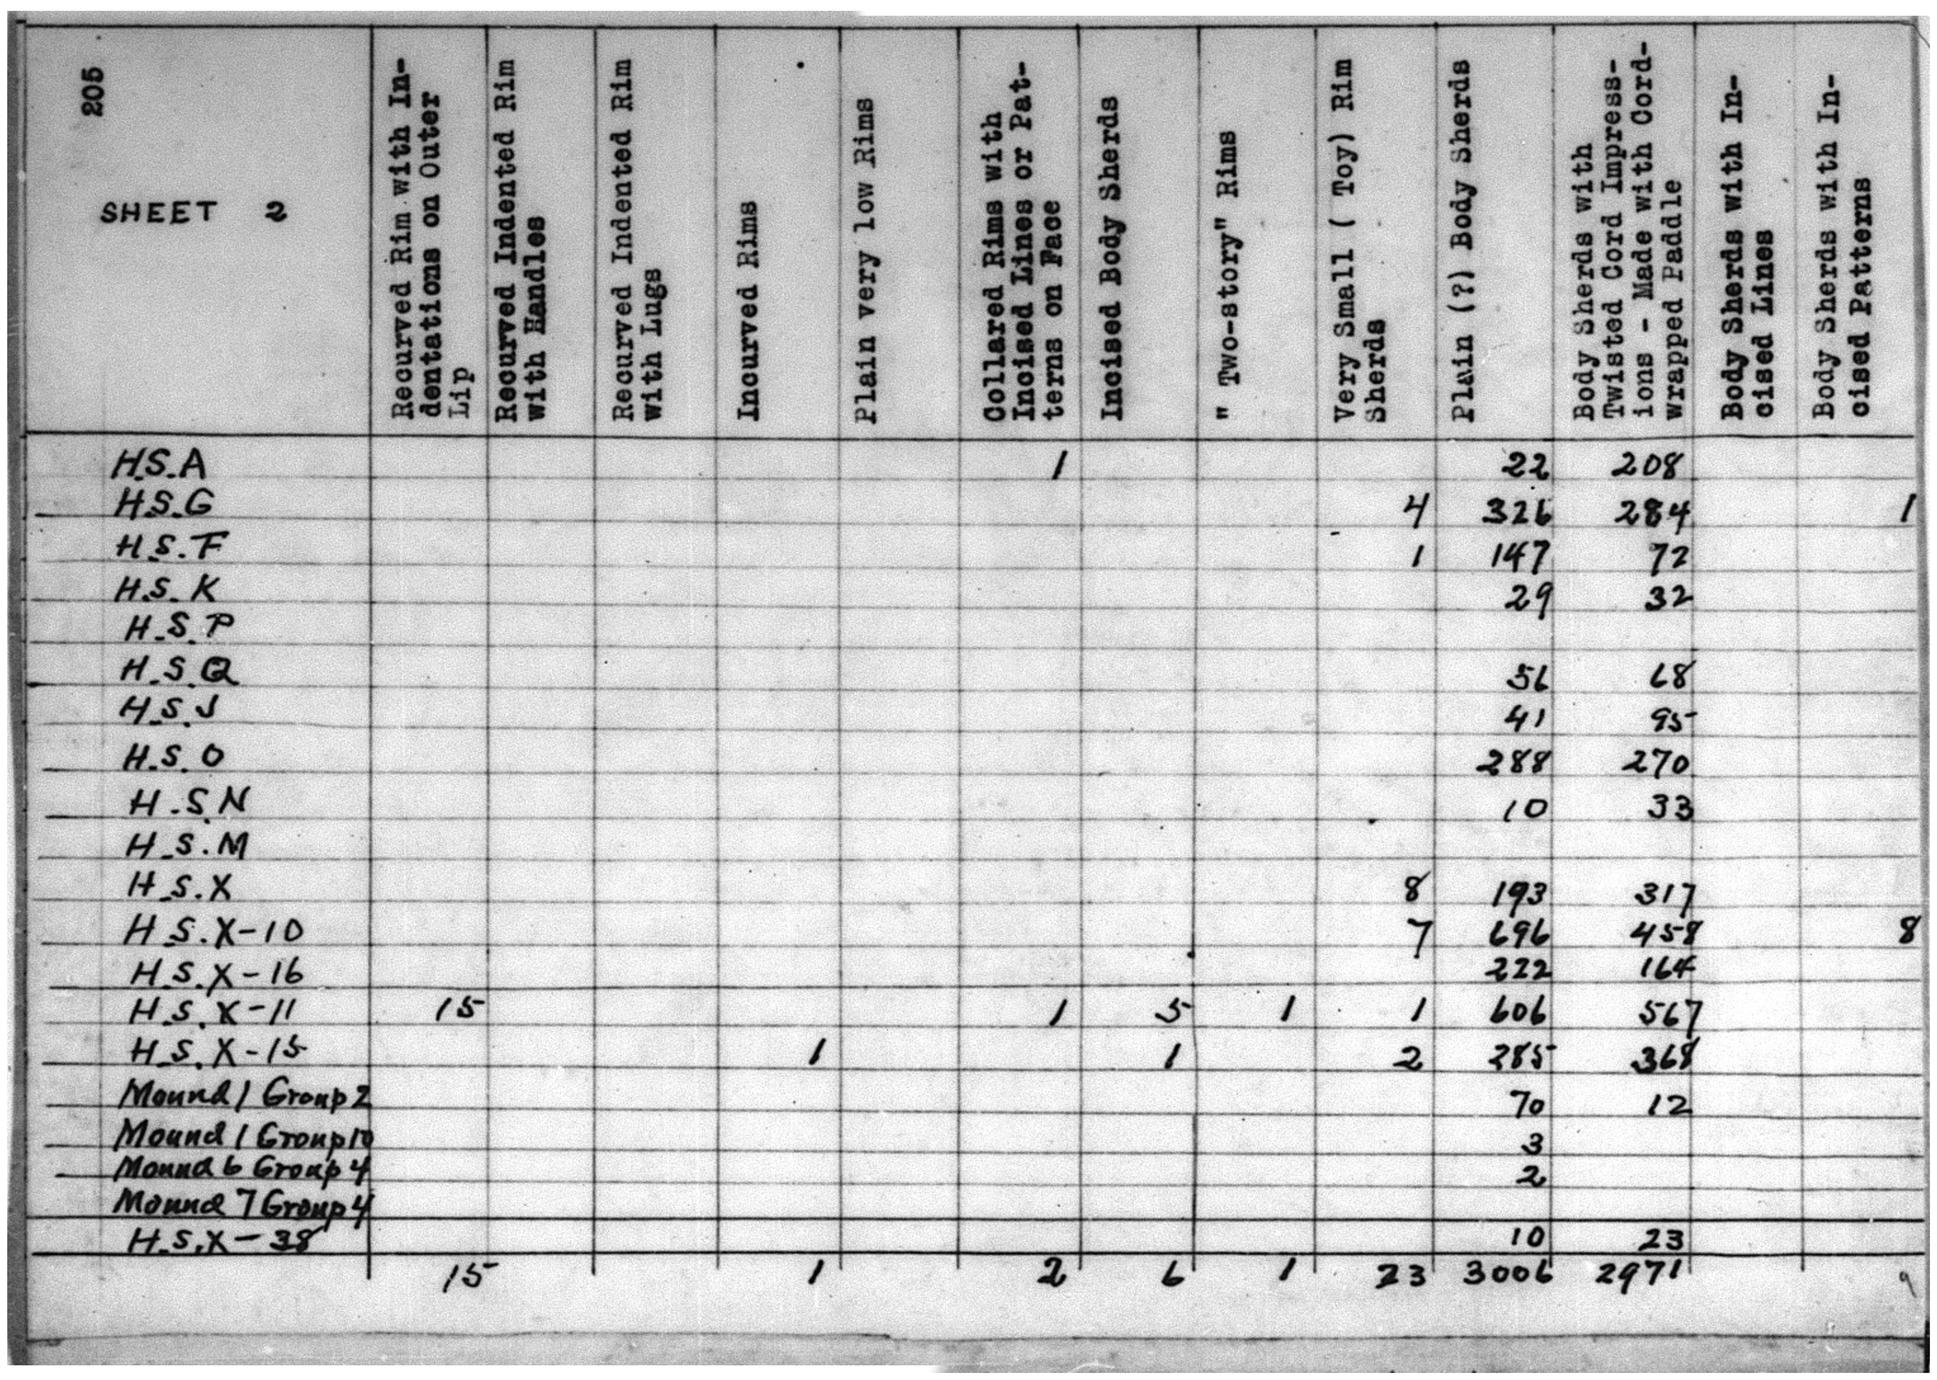 205
SHEET 2
Recurved Rim with In-
dentations on Outer
Lip
Recurved Indented Rim
with Handles
Recurved Indented Rim
with Lugs
Incurved Rims
Plain very low Rims
Collared Rims with
Incised Lines or Pat-
terns on Face
Incised Body Sherds
" Two-story" Rims
Very Small ( Toy) Rim
Sherds
Plain (?) Body Sherds
Body Sherds with
Twisted Cord Impress-
ions - Made with Cord-
wrapped Paddle
Body Sherds with In-
cised Lines
Body Sherds with In-
cised Patterns
H.S.A 1 22 208
H.S.G 4 326 284 1
H.S.F 1 147 72
H.S.K 29 32
H.S.P
H.S.Q 56 68
H.S.J 41 95
H.S.O 288 270
H.S.N 10 33
H.S.M
H.S.X 8 193 317
H.S.X-10 7 696 458 8
H.S.X-16 222 164
H.S.X-11 15 1 5 1 1 606 567
H.S.X-15 1 1 2 285 368
Mound 1 Group 2 70 12
Mound 1 Group 10 3
Mound 6 Group 4 2
Mound 7 Group 4
H.S.X-38 10 23
15 1 2 6 1 23 3006 2971 9